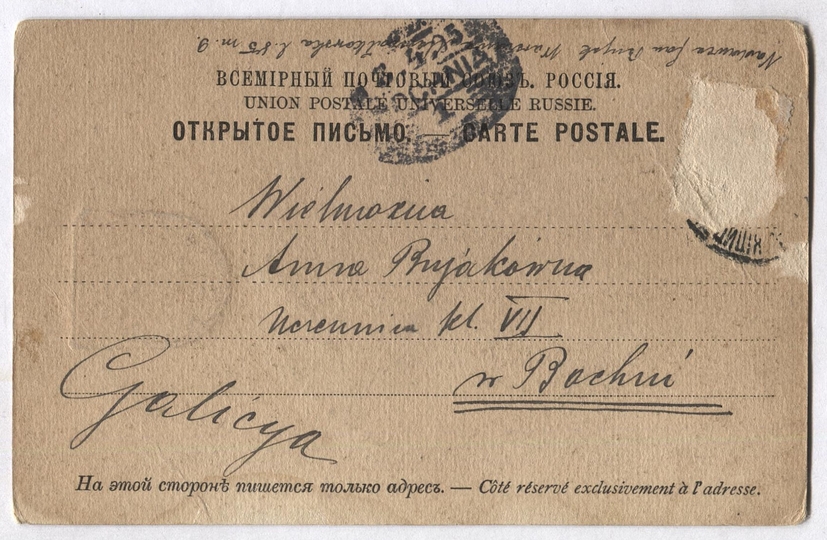 ВСЕМІРНЫЙ ПОЧТОВЫЙ СОЮЗЪ. РОССІЯ.
UNION POSTALE UNIVERSELLE RUSSIE.
ОТКРЫТОЕ ПИСЬМО. — CARTE POSTALE.
Wielmożna
Anna Bujakówna
uczennica kl. VII
w Bochni
Galicya
На этой сторонѣ пишется только адресъ. — Côté réservé exclusivement à l'adresse.